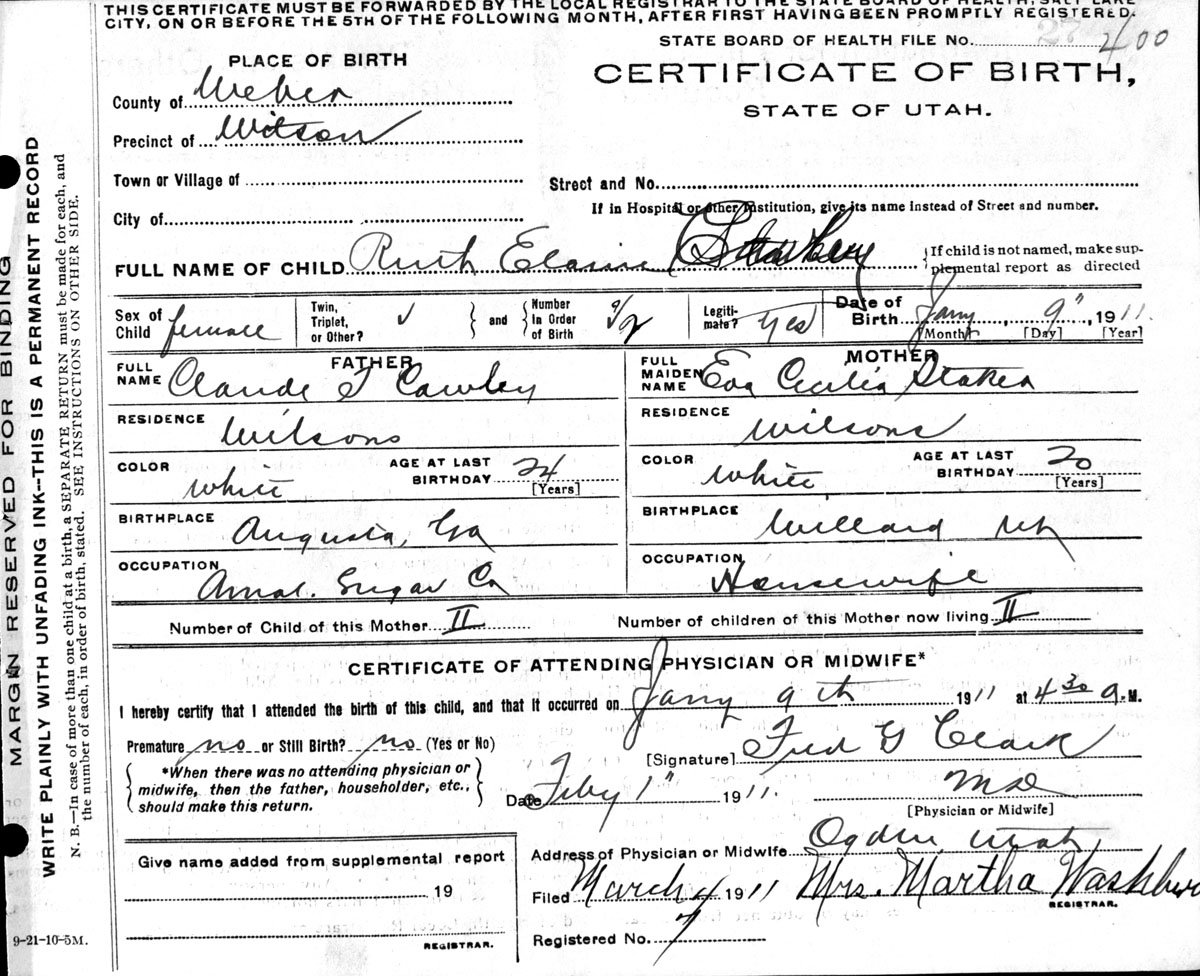 THIS CERTIFICATE MUST BE FORWARDED BY THE LOCAL REGISTRAR TO THE STATE BOARD OF HEALTH, SALT LAKE
CITY, ON OR BEFORE THE 5TH OF THE FOLLOWING MONTH, AFTER FIRST HAVING BEEN PROMPTLY REGISTERED.
STATE BOARD OF HEALTH FILE No. 400
PLACE OF BIRTH
CERTIFICATE OF BIRTH,
STATE OF UTAH.
County of Weber
Precinct of Wilson
Town or Village of
Street and No.
City of
If in Hospital or other Institution, give its name instead of Street and number.
FULL NAME OF CHILD Ruth Elaine Cawley
If child is not named, make sup-
plemental report as directed
Sex of Child female
Twin, Triplet, or Other?
and
Number In Order of Birth
Legiti-mate? yes
Date of Birth Jany 9", 1911.
[Month] [Day] [Year]
FATHER
FULL NAME Claude T Cawley
RESIDENCE Wilsons
COLOR White
AGE AT LAST BIRTHDAY 24
[Years]
BIRTHPLACE Augusta, Ga
OCCUPATION Amal. Sugar Co
MOTHER
FULL MAIDEN NAME Eva Cecilia Staker
RESIDENCE Wilsons
COLOR White
AGE AT LAST BIRTHDAY 20
[Years]
BIRTHPLACE Willard Ut
OCCUPATION Housewife
Number of Child of this Mother II
Number of children of this Mother now living II
CERTIFICATE OF ATTENDING PHYSICIAN OR MIDWIFE*
I hereby certify that I attended the birth of this child, and that it occurred on Jany 9th 1911 at 4 30 a. M.
Premature no or Still Birth? no (Yes or No)
[Signature] Fred G Clark
*When there was no attending physician or
midwife, then the father, householder, etc.,
should make this return.
Date Feby 1" 1911.
MD
[Physician or Midwife]
Give name added from supplemental report
19
REGISTRAR.
Address of Physician or Midwife Ogden Utah
Filed March 4 1911 Mrs. Martha Washburn
REGISTRAR.
Registered No. 7
9-21-10-5M.
MARGIN RESERVED FOR BINDING
WRITE PLAINLY WITH UNFADING INK--THIS IS A PERMANENT RECORD
N. B.—In case of more than one child at a birth, a SEPARATE RETURN must be made for each, and
the number of each, in order of birth, stated. SEE INSTRUCTIONS ON OTHER SIDE.